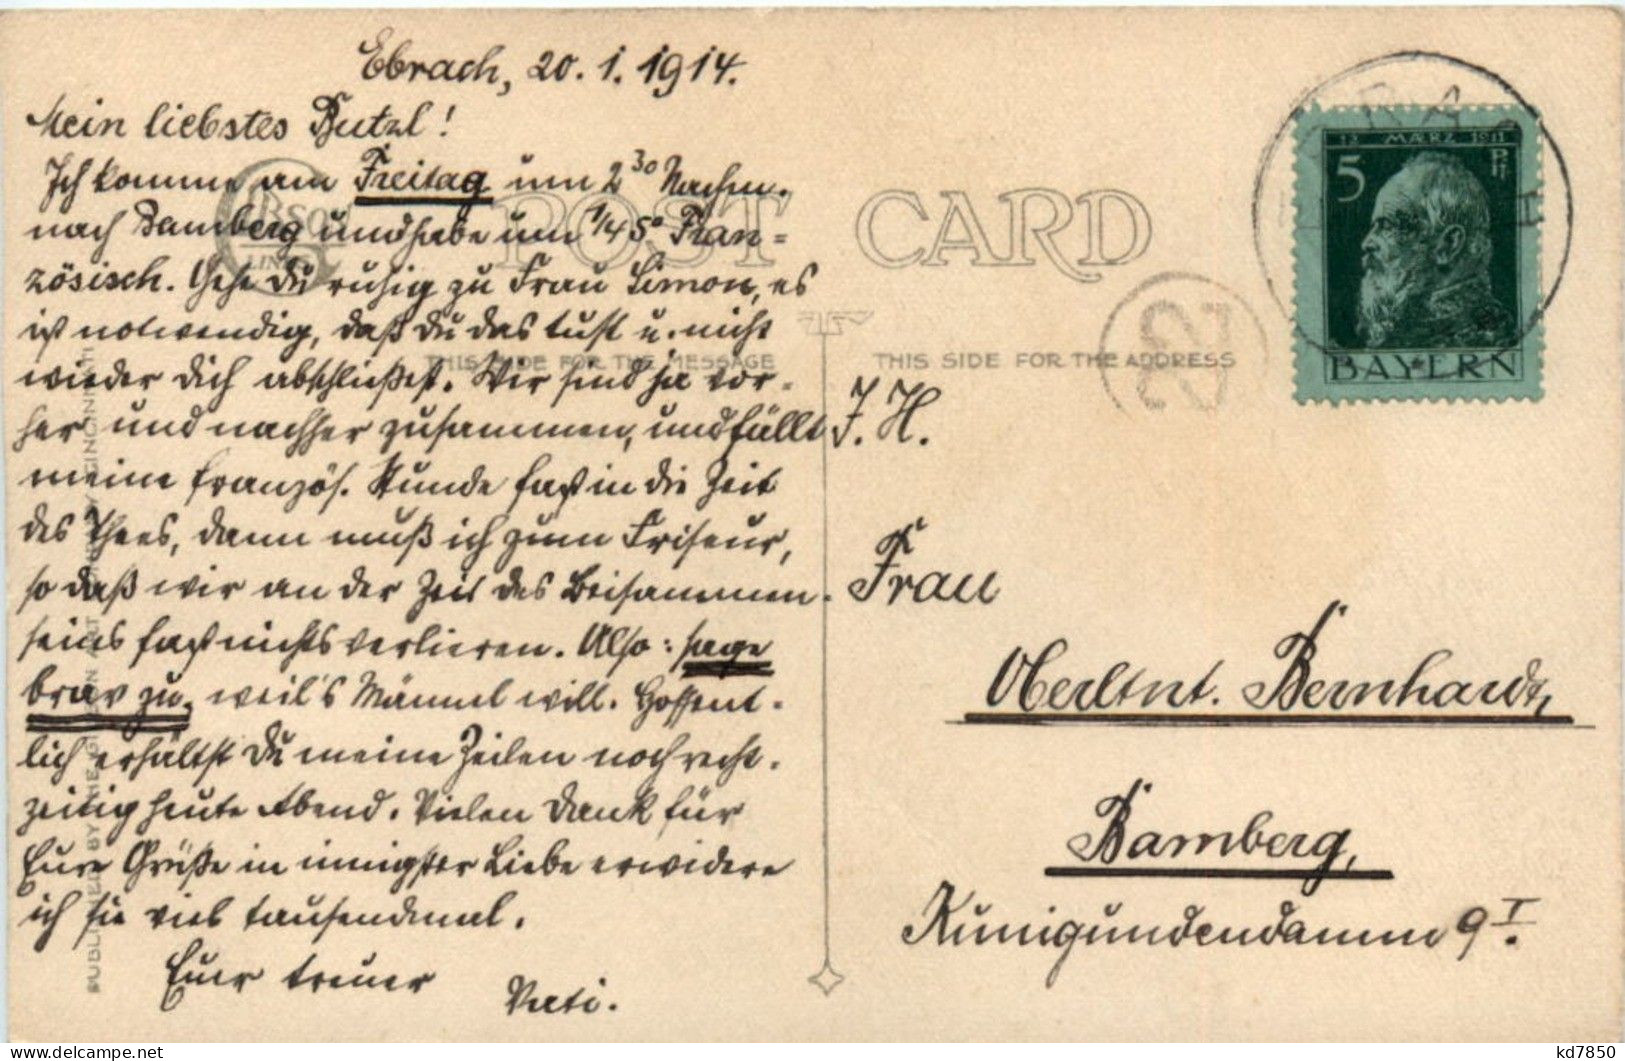 Ebrach, 20. 1. 1914.
Mein liebstes Butzl!
Ich komme am Freitag um 2 30 Nachm.
nach Bamberg und habe um 1/4 5° Fran=
zösisch. Gehe Du ruhig zu Frau Simon, es
ist notwendig, daß Du das tust u. nicht
wieder Dich abschließest. Wir sind ja vor-
her und nachher zusammen, und fällt
meine französ. Stunde fast in die Zeit
des Thees, dann muß ich zum Friseur,
so daß wir an der Zeit des Beisammen-
seins fast nichts verlieren. Also: sage
brav zu, weil's Männel will. Hoffent-
lich erhältst Du meine Zeilen noch recht-
zeitig heute Abend. Vielen Dank für
Eure Grüße in innigster Liebe erwidere
ich sie viel tausendmal.
Euer treuer
Vati.
POST CARD
THIS SIDE FOR THE MESSAGE
THIS SIDE FOR THE ADDRESS
12 MÄRZ 1911
5 PF
BAYERN
EBRACH
I. H.
Frau
Oberltnt. Bernhardt,
Bamberg,
Kunigundendamm 9 I.
kd7850